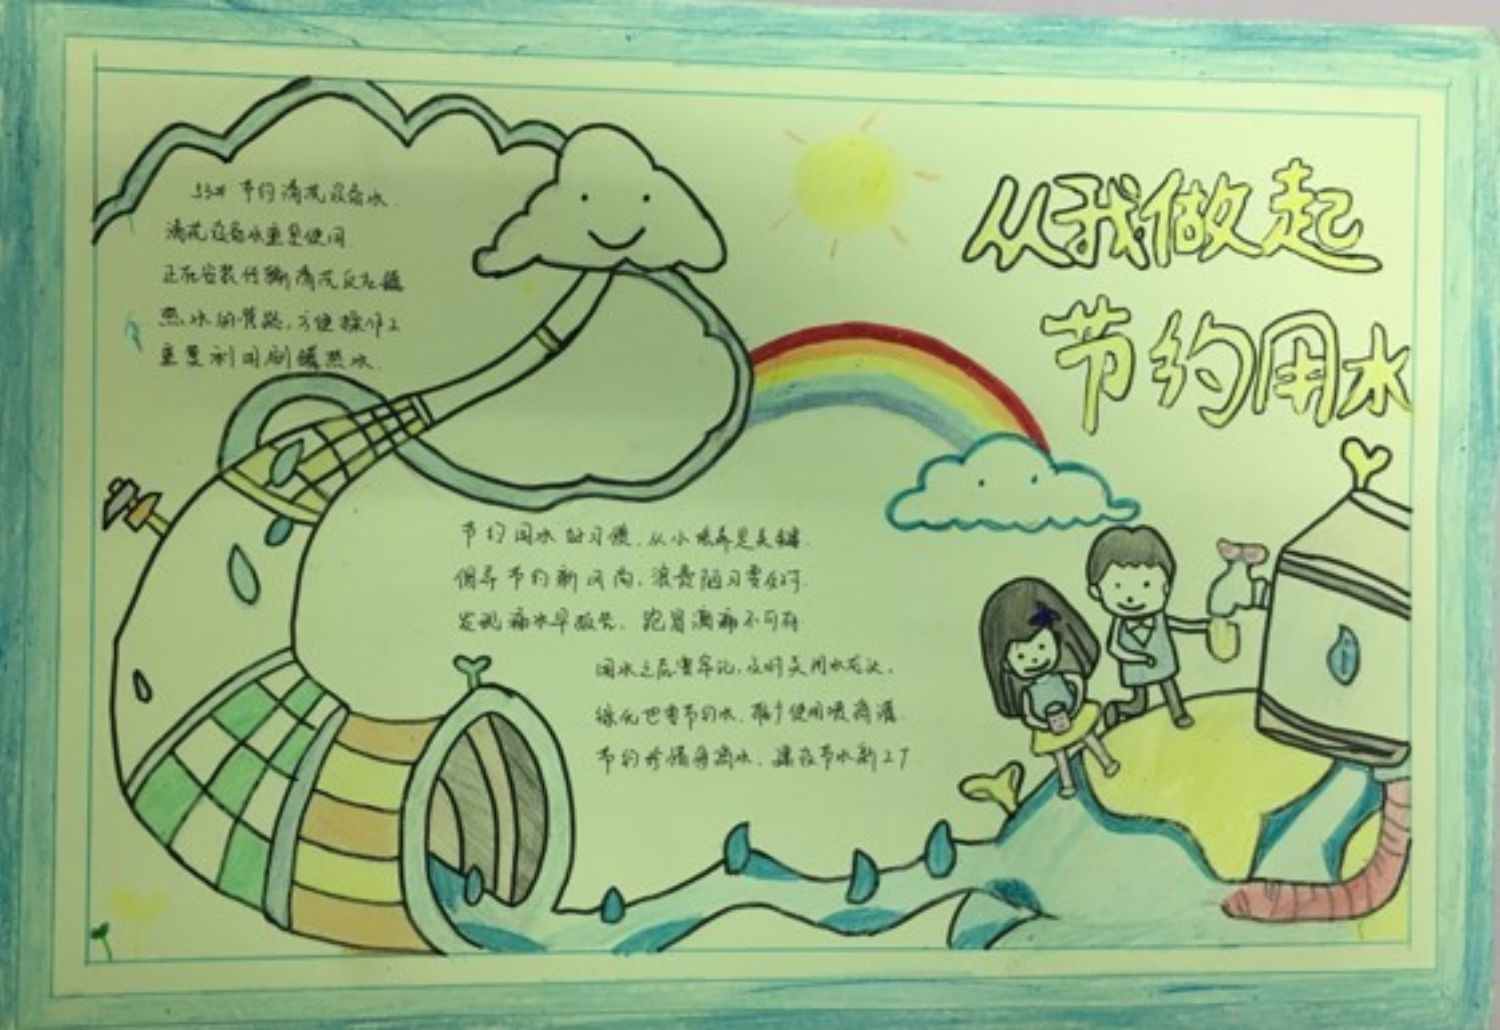 从我做起
节约用水
33# 节约清洗设备水.
清洗设备水重复使用.
正在安装传输清洗反应罐
热水的管路,方便操作工
重复利用刷罐热水.
节约用水好习惯,从小培养是关键.
倡导节约新风尚,浪费陋习要反对.
发现漏水早报告,跑冒滴漏不可有
用水之后要牢记,及时关闭水龙头.
绿化也要节约水,推广使用喷滴灌.
节约珍惜每滴水,建设节水新工厂